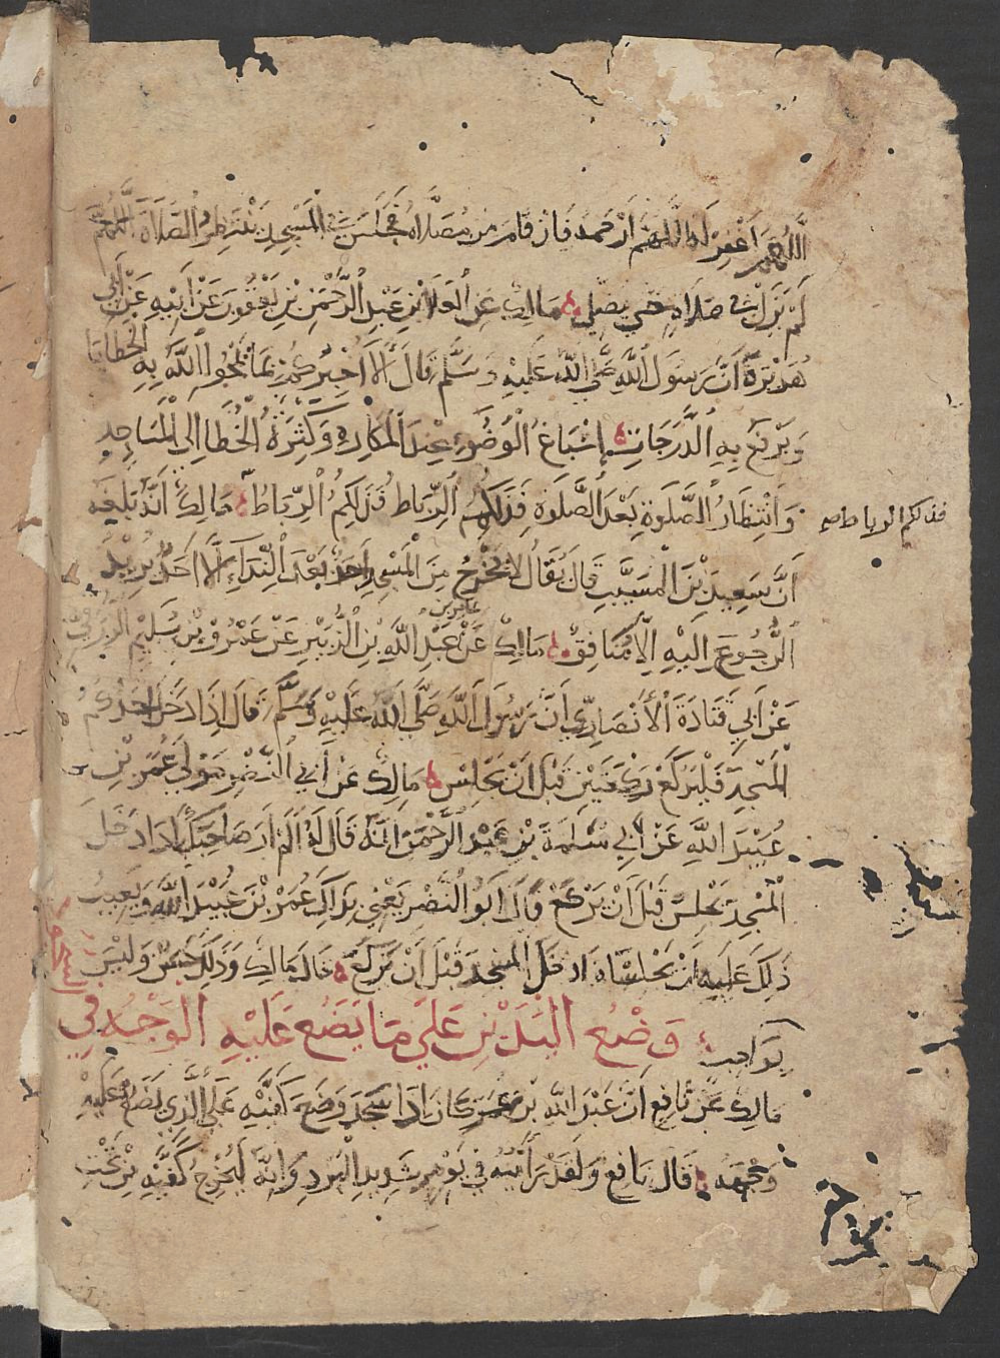 اللهم اغفر له اللهم ارحمه فان قام من مصلاه فجلس في المسجد ينتظر الصلاة
لم يزل في صلاة حتى يصلي مالك عن العلا بن عبد الرحمن بن يعقوب عن ابيه عن ابي
هريرة ان رسول الله صلى الله عليه وسلم قال الا اخبركم بما يمحوا الله به الخطايا
ويرفع به الدرجات اسباغ الوضوء عند المكاره وكثرة الخطا الى المساجد
وانتظار الصلوة بعد الصلوة فذلكم الرباط فذلكم الرباط مالك انه بلغه
فذلكم الرباط صح
ان سعيد بن المسيب قال يقال لا يخرج من المسجد احد بعد النداء الا احد يريد
الرجوع اليه الا منافق مالك عن عامر بن عبد الله بن الزبير عن عمرو بن سليم الزرقي
عن ابي قتادة الانصاري ان رسول الله صلى الله عليه وسلم قال اذا دخل احدكم
المسجد فليركع ركعتين قبل ان يجلس مالك عن ابي النضر مولى عمر بن
عبيد الله عن ابي سلمة بن عبد الرحمن انه قال له الم ار صاحبك اذا دخل
المسجد يجلس قبل ان يركع قال ابو النضر يعني بذلك عمر بن عبيد الله ويعيب
ذلك عليه ان يجلس اذا دخل المسجد قبل ان يركع قال مالك وذلك حسن وليس
بواجب وضع اليدين على ما يضع عليه الوجه في
مالك عن نافع ان عبد الله بن عمر كان اذا سجد وضع كفيه على الذي يضع عليه
وجهه قال نافع ولقد رايته في يوم شديد البرد وانه ليخرج كفيه من تحت